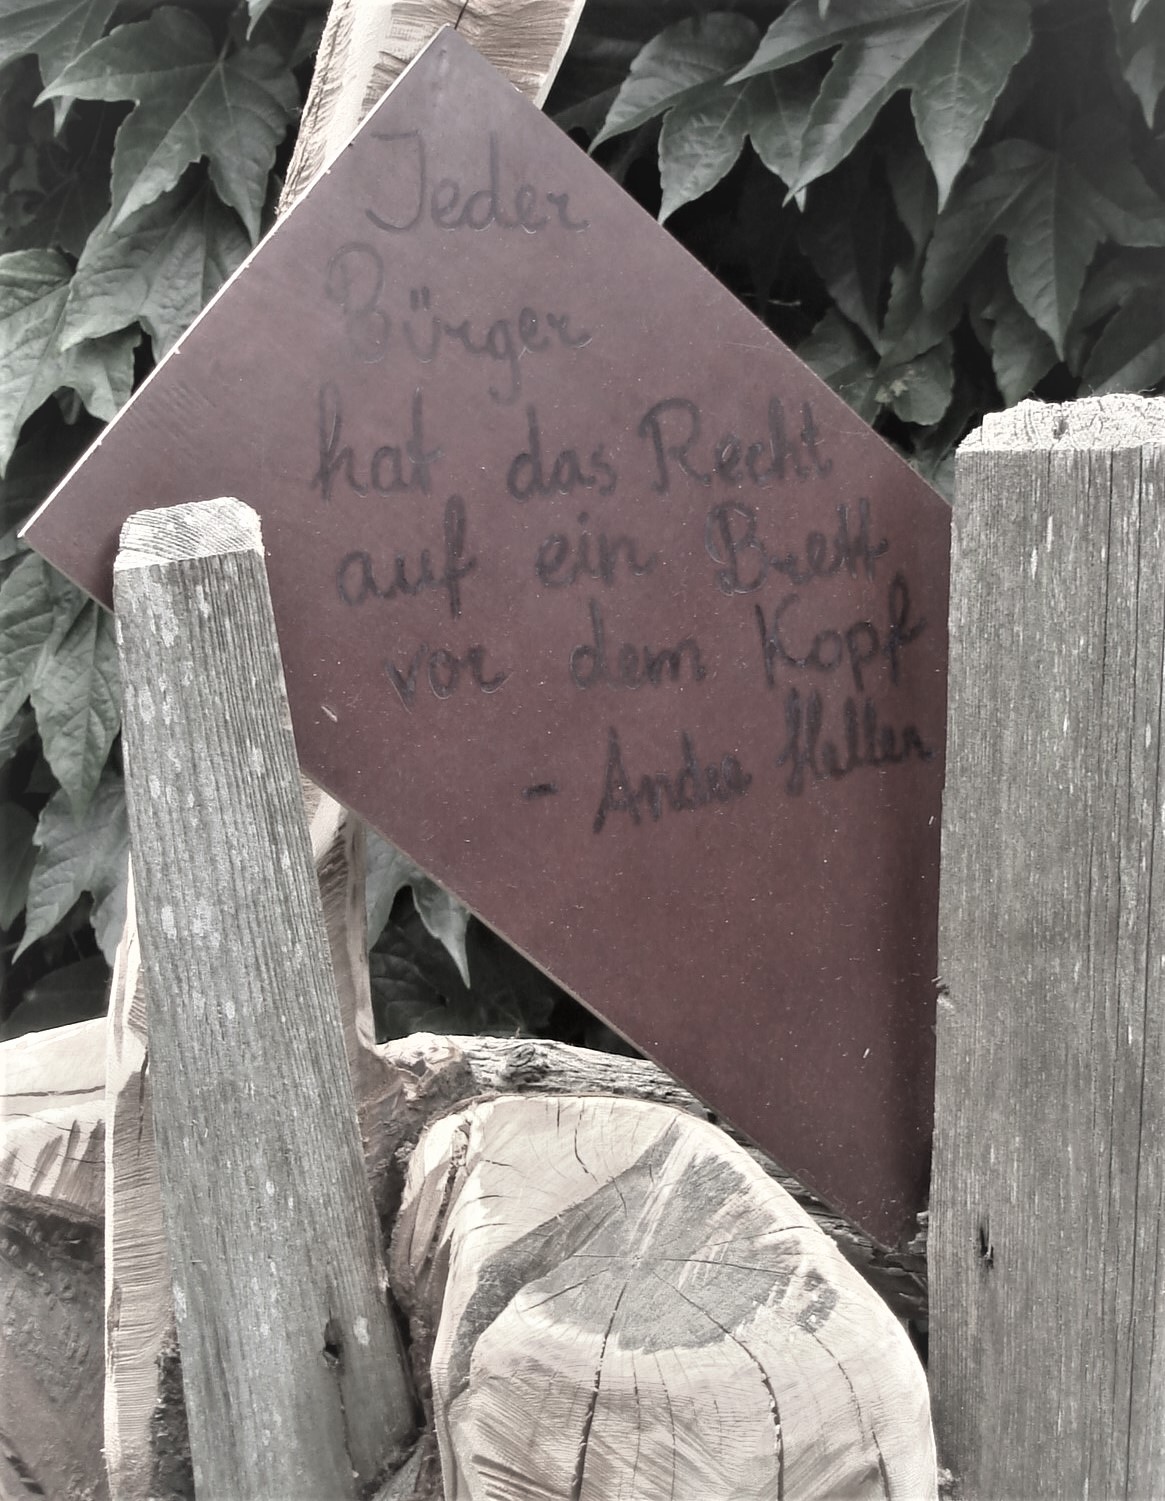 Jeder
Bürger
hat das Recht
auf ein Brett
vor dem Kopf
- Andre Heller